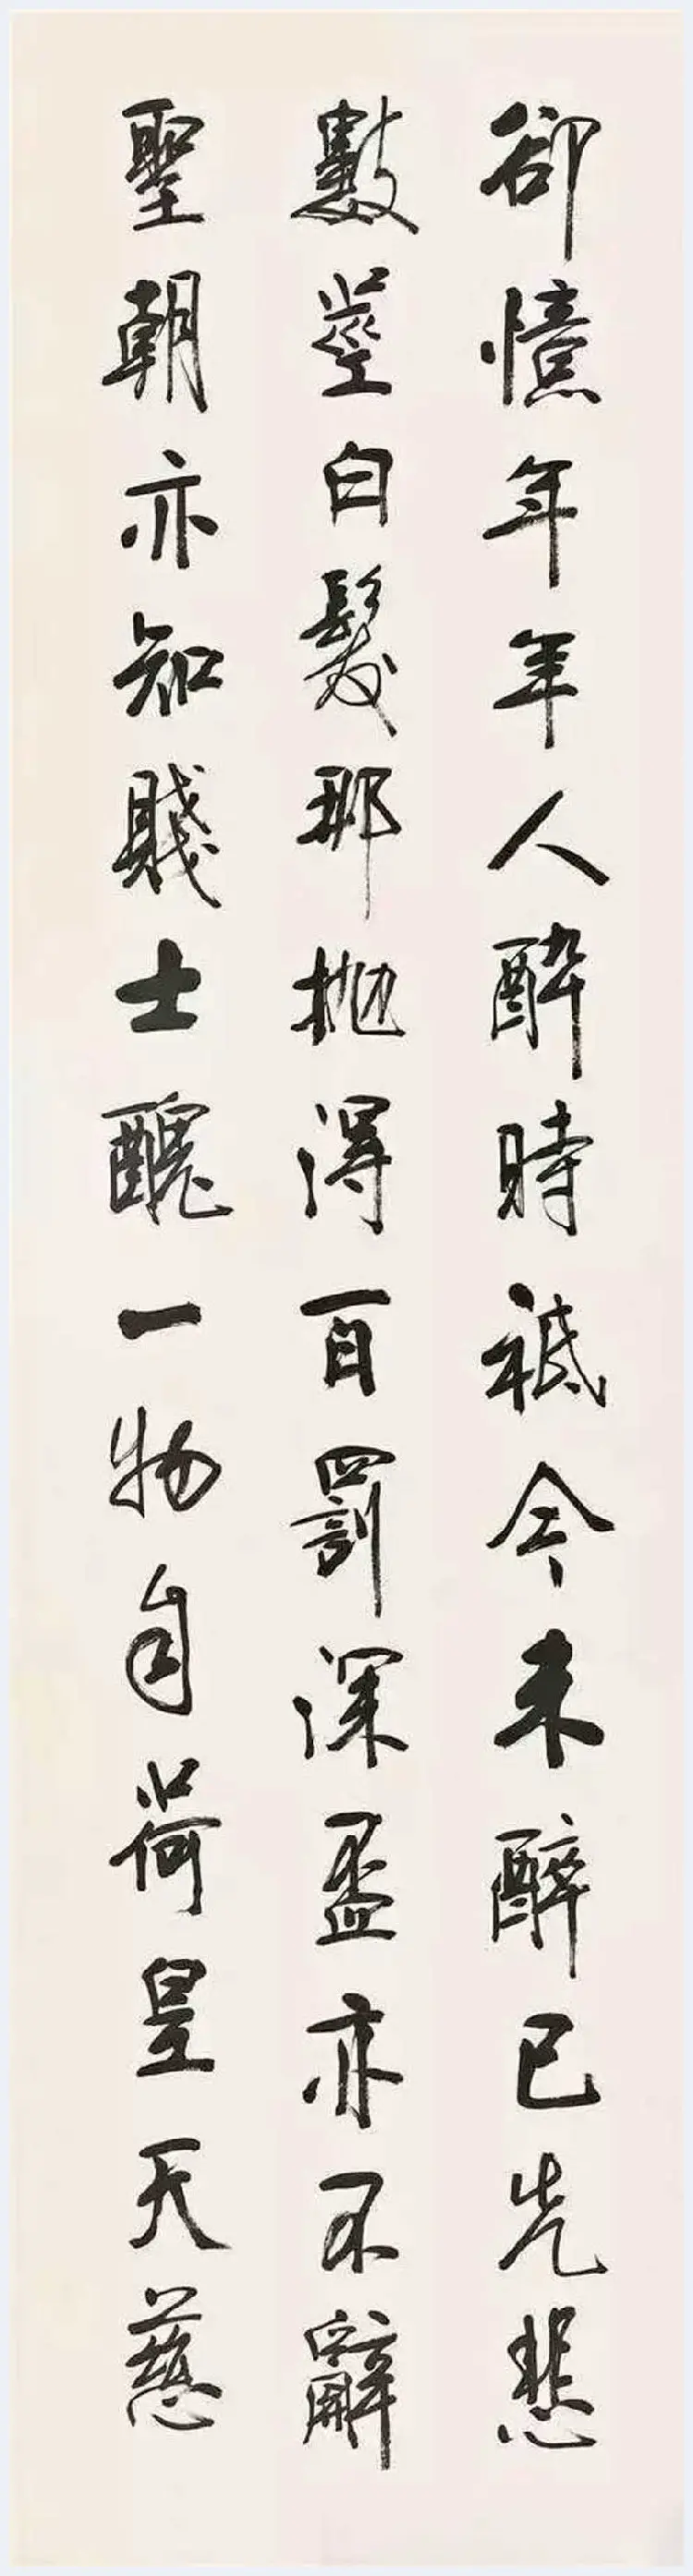 卻憶年年人醉時祗今未醉已先悲
數莖白髮那抛得百罰深盃亦不辭
聖朝亦知賤士醜一物自荷皇天慈